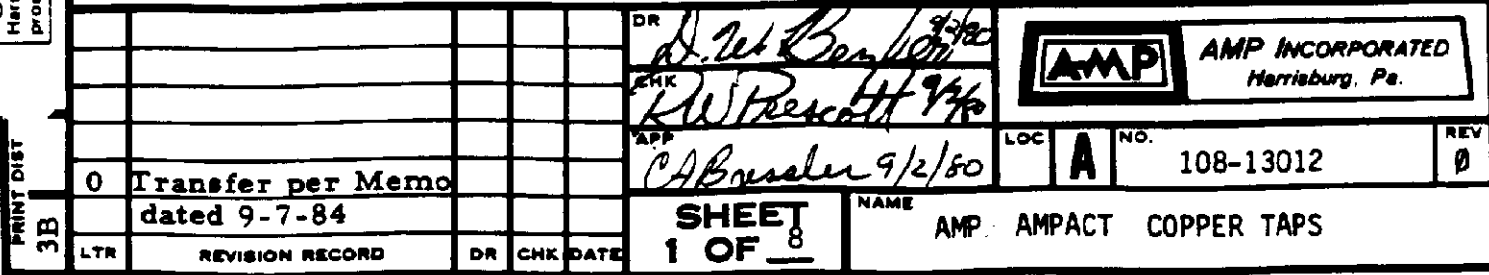 Hard
prod
PRINT DIST
3B
0 Transfer per Memo
dated 9-7-84
LTR REVISION RECORD DR CHK DATE
DR
9/2/80
CHK
RW Prescott 9/2/80
APP
CA Bressler 9/2/80
SHEET
1 OF 8
AMP
AMP INCORPORATED
Harrisburg, Pa.
LOC A NO. 108-13012 REV 0
NAME AMP AMPACT COPPER TAPS